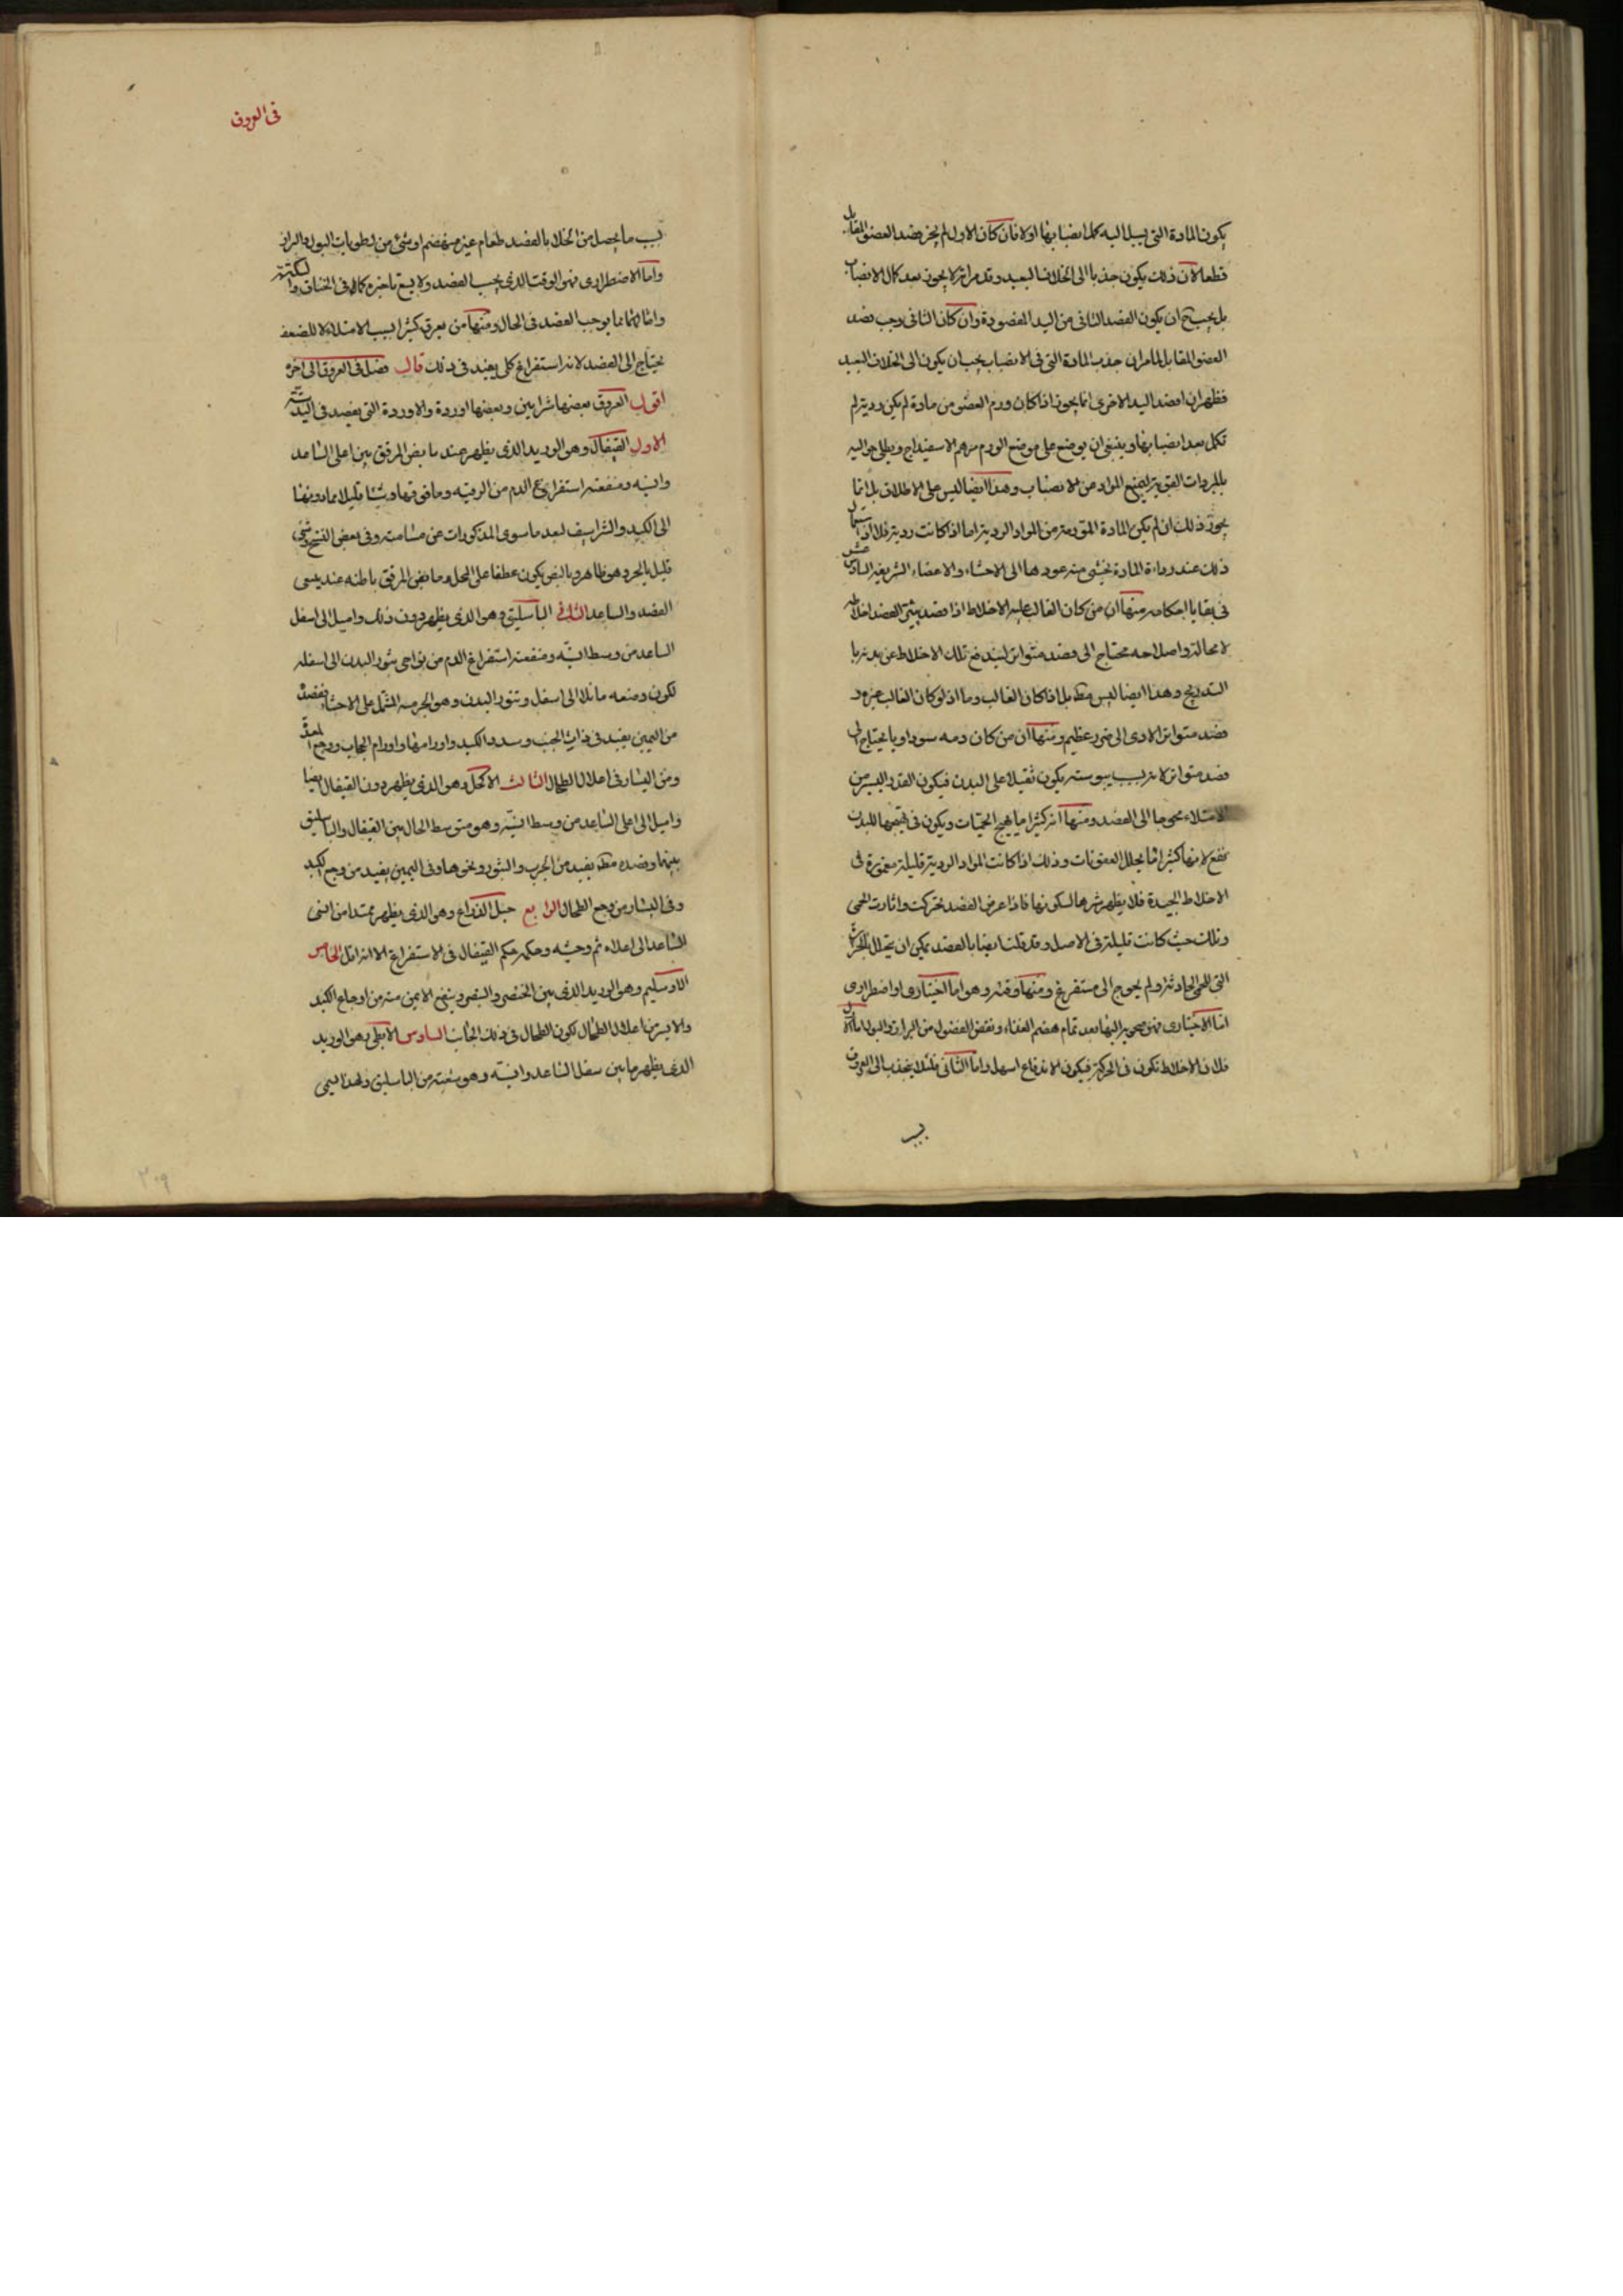 يكون المادة التى يسيل اليه كملا نصبابها او لا فان كان الاول لم يجز فصد العضو المقابل
قطعا لان ذلك يكون جذبا الى الخلاف البعيد وقد مر انه لا يجوز بعد كمال الانصباب
بل يجب ح ان يكون الفصد الثانى من اليد المفصودة وان كان الثانى وجب فصد
العضو المقابل لما مر ان جذب المادة التى فى الانصباب يجب ان يكون الى الخلاف البعيد
فظهر ان فصد اليد الاخرى انما يجوز اذا كان ورم العضو من مادة لم يكن ردية لم
تكمل بعد انصبابها وينبغى ان يوضع على موضع الورم مرهم الاسفيداج ويطلى حواليه
بالمبردات القوية ليمنع المواد عن الانصباب وهذا ايضا ليس على الاطلاق بل انما
يجوز ذلك ان لم يكن المادة المتورمة من المواد الردية اما اذا كانت ردية فلا اذ
ذلك عند رداءة المادة يخشى منه عودها الى الاحشاء والاعضاء الشريفة السادس عشر
فى بقايا احكامه منها ان من كان الغالب عليه الاخلاط اذا فصد يثير الفصد اخلاطه
لا محالة واصلاحه محتاج الى فصد متواتر ليندفع تلك الاخلاط عن بدنه با
التدريج وهذا ايضا ليس مط بل اذا كان الغالب دما اذ لو كان الغالب غيره و
فصد متواتر الادى الى ضرر عظيم ومنها ان من كان دمه سوداويا يحتاج الى
فصد متواتر لانه بسبب يبوسته يكون ثقيلا على البدن فيكون القدر اليسير من
الامتلاء محوجا الى الفصد ومنها انه كثيرا ما يهيج الحميات ويكون فى تهيجها للبدن
نفع لانها كثيرا ما يحلل العفونات وذلك اذا كانت المواد الردية قليلة مغمورة فى
الاخلاط الجيدة فلا يظهر شرها لسكونها فاذا عرض الفصد تحركت واثارت الحمى
وتلك حيث كانت قليلة فى الاصل وقد قلت ايضا بالفصد يمكن ان يتحلل بالحرارة
التى للحمى الحادثة ولم يحوج الى مستفرغ ومنها وقته وهو اما اختيارى او اضطرارى
اما الاختيارى فهو ضحوة النهار بعد تمام هضم الغذاء ونفض الفضول من البراز والبول اما الاول
فلان الاخلاط تكون فى الحركة فيكون الاندفاع اسهل واما الثانى فلئلا ينجذب الى العروق
بسبب
فى العروق
بسبب ما يحصل من الخلاء بالفصد طعام غير منهضم او شئ من رطوبات البول والبراز
واما الاضطرارى فهو الوقت الذى يجب الفصد ولا يسع تاخيره كما فى الخناق والسكتة
وامثالهما مما يوجب الفصد فى الحال ومنها من يعرق كثيرا بسبب الامتلاء لا للضعف
يحتاج الى الفصد لانه استفراغ كلى يفيد فى ذلك قال فصل فى العروق الى اخره
اقول العروق بعضها شرايين وبعضها اوردة والاوردة التى يفصد فى اليد ستة
الاول القيفال وهو الوريد الذى يظهر عند مابض المرفق بين اعلى الساعد
وانسيه ومنفعته استفراغ الدم من الرقبة وما فوقها وشيئا قليلا مما دونها
الى الكبد والشراسيف لبعد ما سوى المذكورات عن مسامته وفى بعض النسخ وشئ
قليل بالجر وهو ظاهر وبالنصب يكون عطفا على المحل ومابض المرفق باطنه عند ملتقى
العضد والساعد الثانى الباسليق وهو الذى يظهر دون ذلك واميل الى اسفل
الساعد من وسط انسيه ومنفعته استفراغ الدم من نواحى تنور البدن الى اسفله
لكون وضعه مائلا الى اسفل وتنور البدن وهو الجرم المشتمل على الاحشاء وفصده
من اليمين يفيد فى ذات الجنب وسدد الكبد واورامها واورام الحجاب ووجع المعدة
ومن اليسار فى اعلال الطحال الثالث الاكحل وهو الذى يظهر دون القيفال ايضا
واميل الى اعلى الساعد من وسط انسيه وهو متوسط الحال بين القيفال والباسليق
بينهما وفصده مط يفيد من الجرب والبثور ونحوها وفى اليمين يفيد من وجع الكبد
وفى اليسار من وجع الطحال الرابع حبل الذراع وهو الذى يظهر ممتدا من انسى
الساعد الى اعلاه ثم وحشيه وحكمه حكم القيفال فى الاستفراغ الا انه اقل الخامس
الاسيلم وهو الوريد الذى بين الخنصر والبنصر وينفع الايمن منه من اوجاع الكبد
والايسر من اعلال الطحال لكون الطحال فى ذلك الجانب السادس الابطى وهو الوريد
الذى يظهر ما بين سفل الساعد وانسيه وهو شعبة من الباسليق ولهذا يسمى
٢٠٩